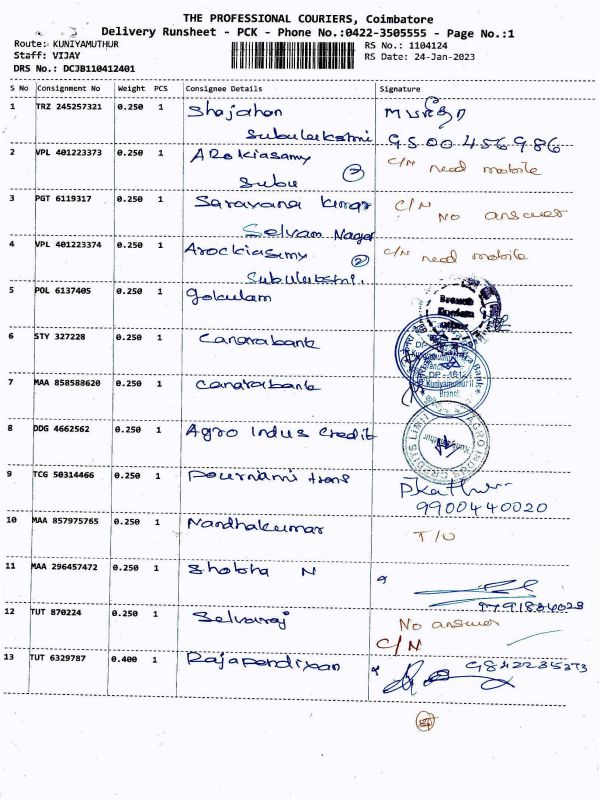 THE PROFESSIONAL COURIERS, Coimbatore
Delivery Runsheet - PCK - Phone No.:0422-3505555 - Page No.:1
Route: KUNIYAMUTHUR RS No.: 1104124
Staff: VIJAY RS Date: 24-Jan-2023
DRS No.: DCJB110412401
S No Consignment No Weight PCS Consignee Details Signature
1 TRZ 245257321 0.250 1 Shajahan
Subulakshmi
2 VPL 401223373 0.250 1 ARokiasamy C/N need mobile
Subu
3 PGT 6119317 0.250 1 Saravana Kumar C/N
Selvam Nagar No answer
4 VPL 401223374 0.250 1 Arockiasamy C/N need mobile
② Subulakshmi.
5 POL 6137405 0.250 1 Gokulam
6 STY 327228 0.250 1 Canarabank
7 MAA 858588620 0.250 1 Canarabank
Kuniyamuthur II
Branch
8 DDG 4662562 0.250 1 Agro Indus Credit
AGRO INDUS CREDITS LIMITED
9 TCG 50314466 0.250 1 Pournami trans
9900440020
10 MAA 857975765 0.250 1 Nandhakumar T/U
11 MAA 296457472 0.250 1 Shobha N
9791834028
12 TUT 870224 0.250 1 Selvaraj No answer
C/N
13 TUT 6329787 0.400 1 Rajapandiyan